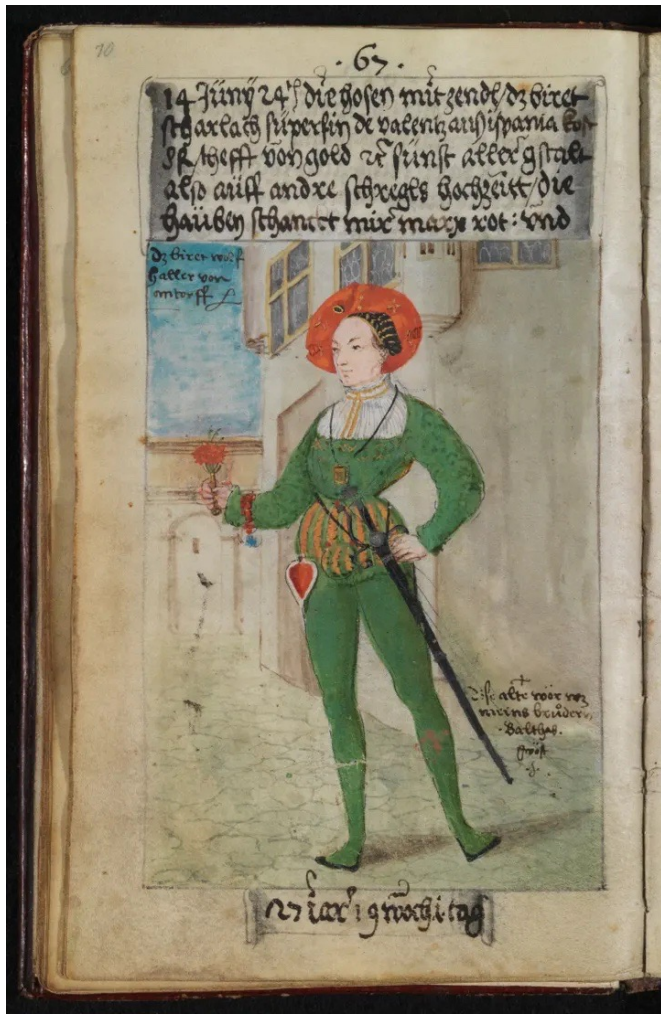 70
· 67 ·
14 Jüny 24 die hosen mit zendl / dz biret
scharlach süperfin de valentz aus ispania kost
8 fl / thefft von gold sünst aller gstalt
also auff andre schregls hochzeitt / die
haüben schanckt mir marx rot : vnd
dz biret wolff
haller von
antorff
alte wör
meins brůders
Balthas.
27 iar 19 woch 1 tag